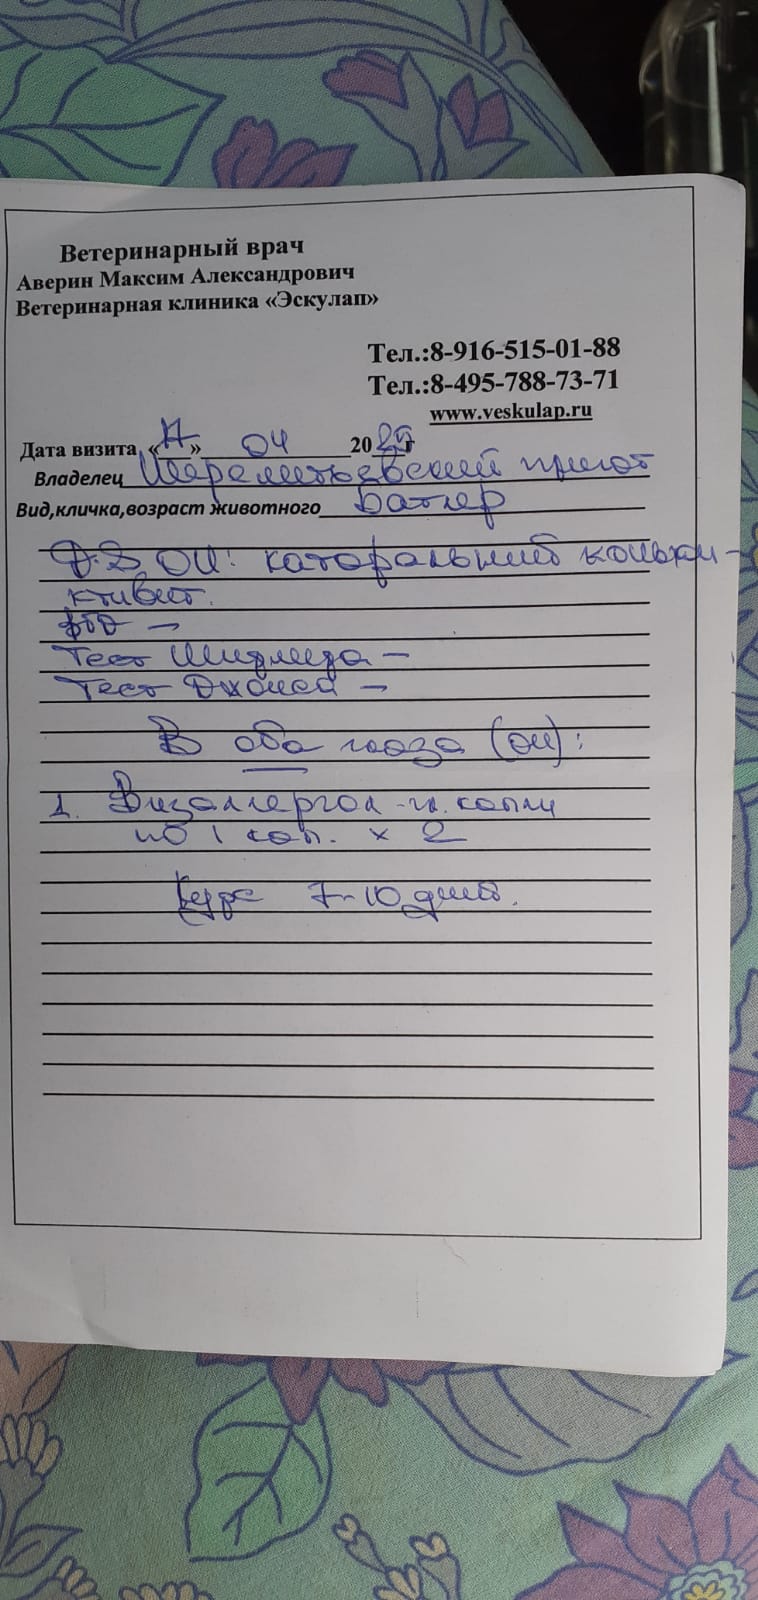 Ветеринарный врач
Аверин Максим Александрович
Ветеринарная клиника «Эскулап»
Тел.:8-916-515-01-88
Тел.:8-495-788-73-71
www.veskulap.ru
Дата визита « » 04 20 г
Владелец Шереметьевский приют
Вид,кличка,возраст животного Батлер
D.S OU: катаральный конъюн-
ктивит.
Тест Ширмера –
Тест Джонса –
В оба глаза (OU):
1. Визаллергол - гл. капли
по 1 кап. x 2
Курс 7-10 дней.